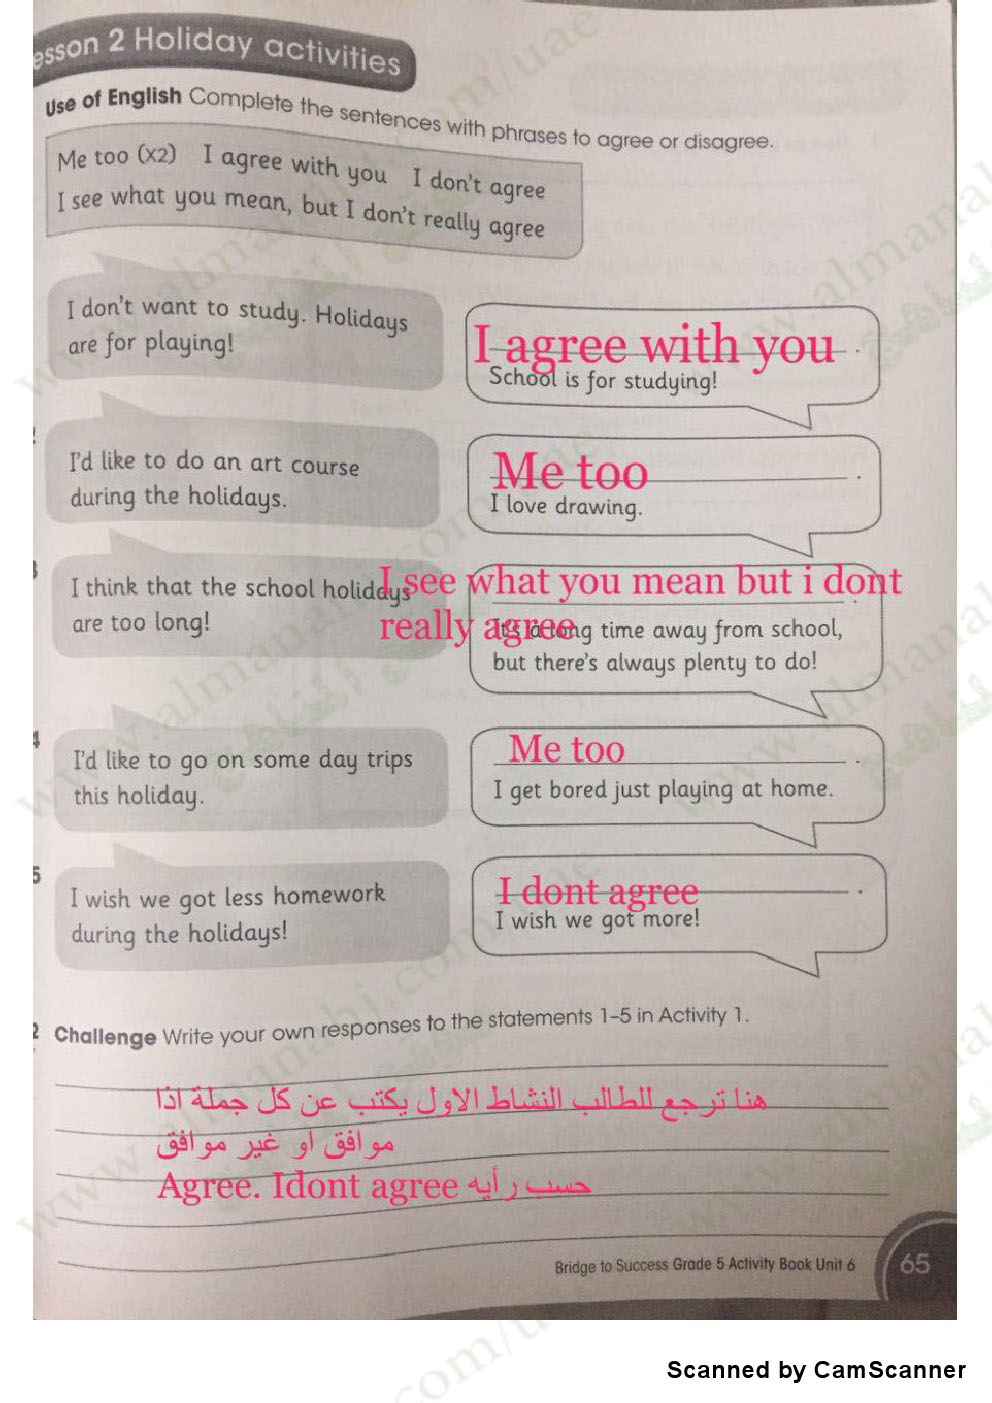 esson 2 Holiday activities
Use of English Complete the sentences with phrases to agree or disagree.
Me too (x2) I agree with you I don't agree
I see what you mean, but I don't really agree
I don't want to study. Holidays
are for playing!
I agree with you .
School is for studying!
2
I'd like to do an art course
during the holidays.
Me too .
I love drawing.
3
I think that the school holidays
are too long!
I see what you mean but i dont
really agree
It's a long time away from school,
but there's always plenty to do!
4
I'd like to go on some day trips
this holiday.
Me too .
I get bored just playing at home.
5
I wish we got less homework
during the holidays!
I dont agree .
I wish we got more!
2 Challenge Write your own responses to the statements 1–5 in Activity 1.
هنا ترجع للطالب النشاط الاول يكتب عن كل جملة اذا
موافق او غير موافق
Agree. Idont agree حسب رأيه
Bridge to Success Grade 5 Activity Book Unit 6 65
www.almanahj.com/uae
المناهج
Scanned by CamScanner